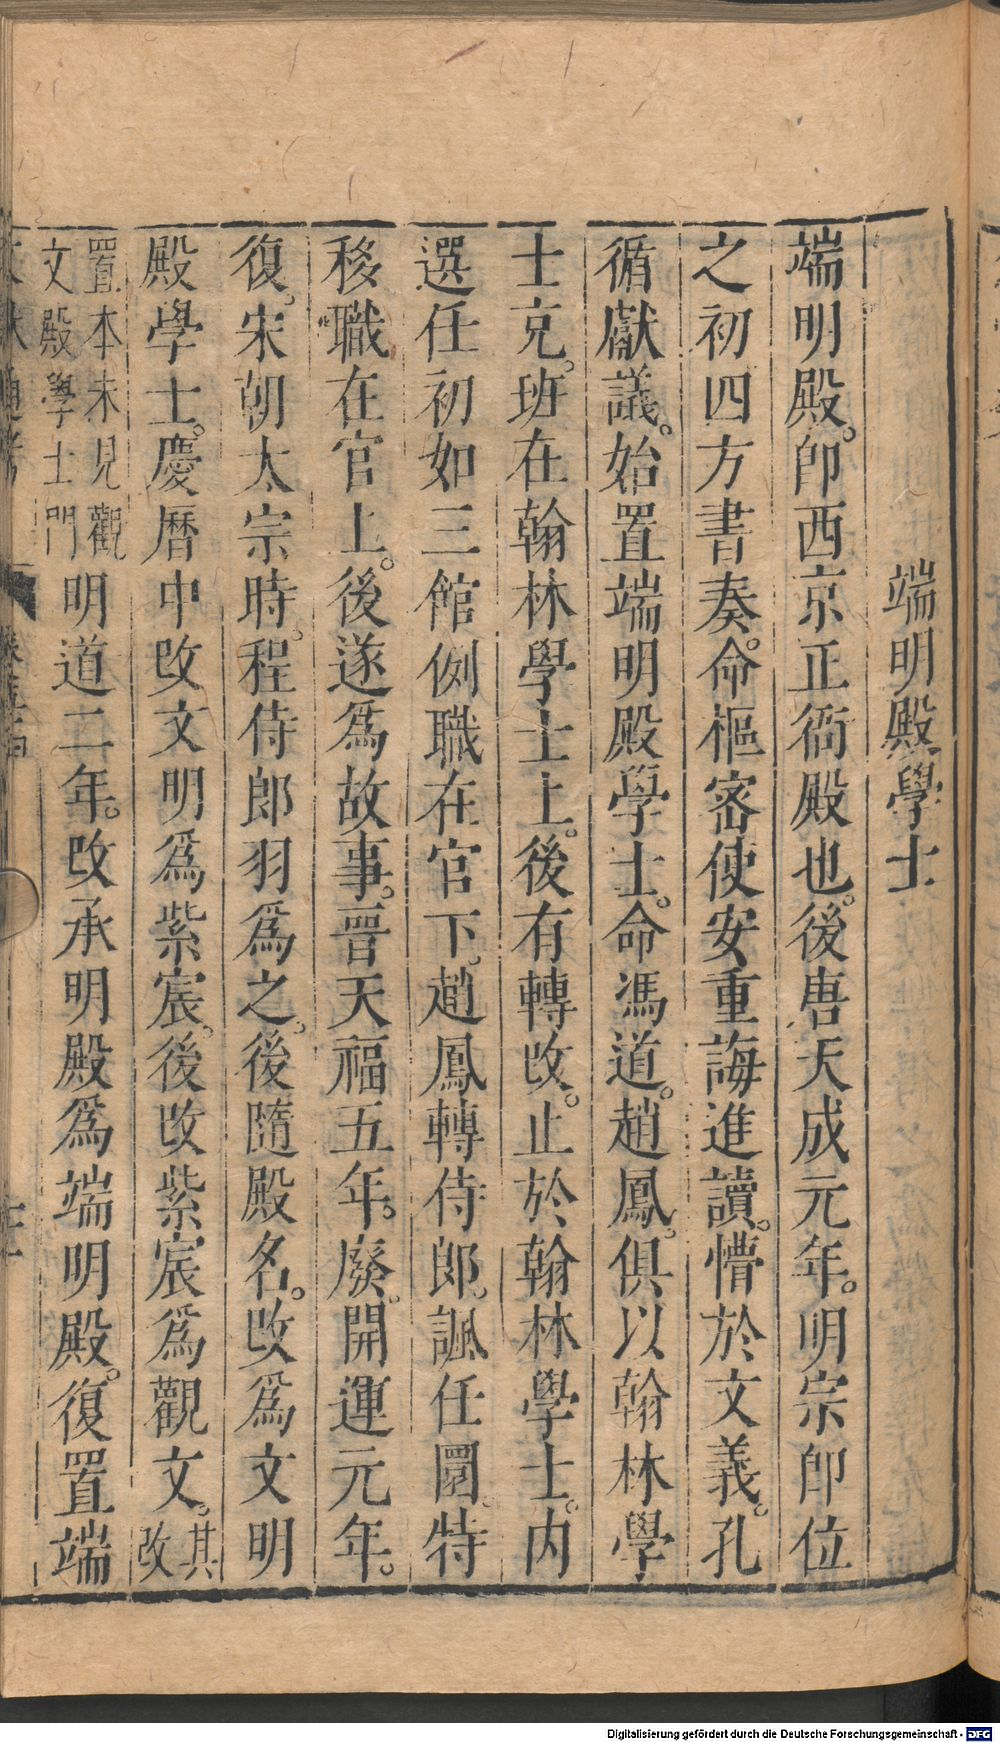 端明殿學士
端明殿。卽西京正衙殿也。後唐天成元年。明宗卽位
之初四方書奏。命樞密使安重誨進讀。懵於文義。孔
循獻議。始置端明殿學士。命馮道。趙鳳。俱以翰林學
士充。班在翰林學士上。後有轉改。止於翰林學士。內
選任初如三館例職在官下。趙鳳轉侍郎。諷任圜。特
移職在官上。後遂爲故事。晉天福五年。廢。開運元年。
復。宋朝太宗時。程侍郎羽爲之。後隨殿名。改爲文明
殿學士。慶曆中改文明爲紫宸。後改紫宸爲觀文。其改
置本末見觀文殿學士門明道二年。改承明殿爲端明殿。復置端
Digitalisierung gefördert durch die Deutsche Forschungsgemeinschaft - DFG